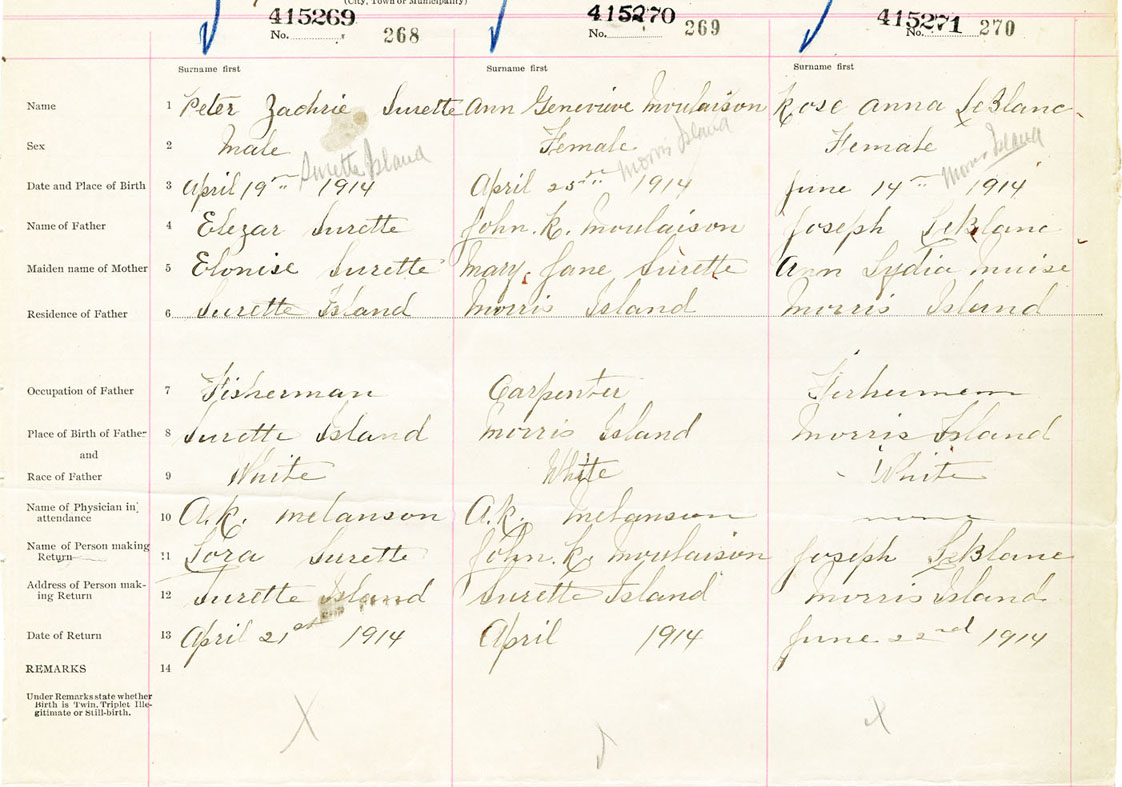 (City, Town or Municipality)
415269 415270 415271
No. 268 No. 269 No. 270
Surname first Surname first Surname first
Name 1 Peter Zachrie Surette Ann Genevieve Moulaison Rose Anna LeBlanc
Sex 2 Male Female Female
Surette Island Morris Island Morris Island
Date and Place of Birth 3 April 19th 1914 April 25th 1914 June 14th 1914
Name of Father 4 Elezar Surette John. K. Moulaison Joseph LeBlanc
Maiden name of Mother 5 Elonise Surette Mary Jane Surette Ann Lydia Muise
Residence of Father 6 Surette Island Morris Island Morris Island
Occupation of Father 7 Fisherman Carpenter
Place of Birth of Father 8 Surette Island Morris Island Morris Island
and
Race of Father 9 White White White
Name of Physician in attendance 10 A.K. Melanson A.K. Melanson none
Name of Person making Return 11 Lora Surette John. K. Moulaison Joseph LeBlanc
Address of Person mak-
ing Return 12 Surette Island Surette Island Morris Island
Date of Return 13 April 21st 1914 April 1914 June 22nd 1914
REMARKS 14
Under Remarks state whether
Birth is Twin, Triplet Ille-
gitimate or Still-birth.
X X